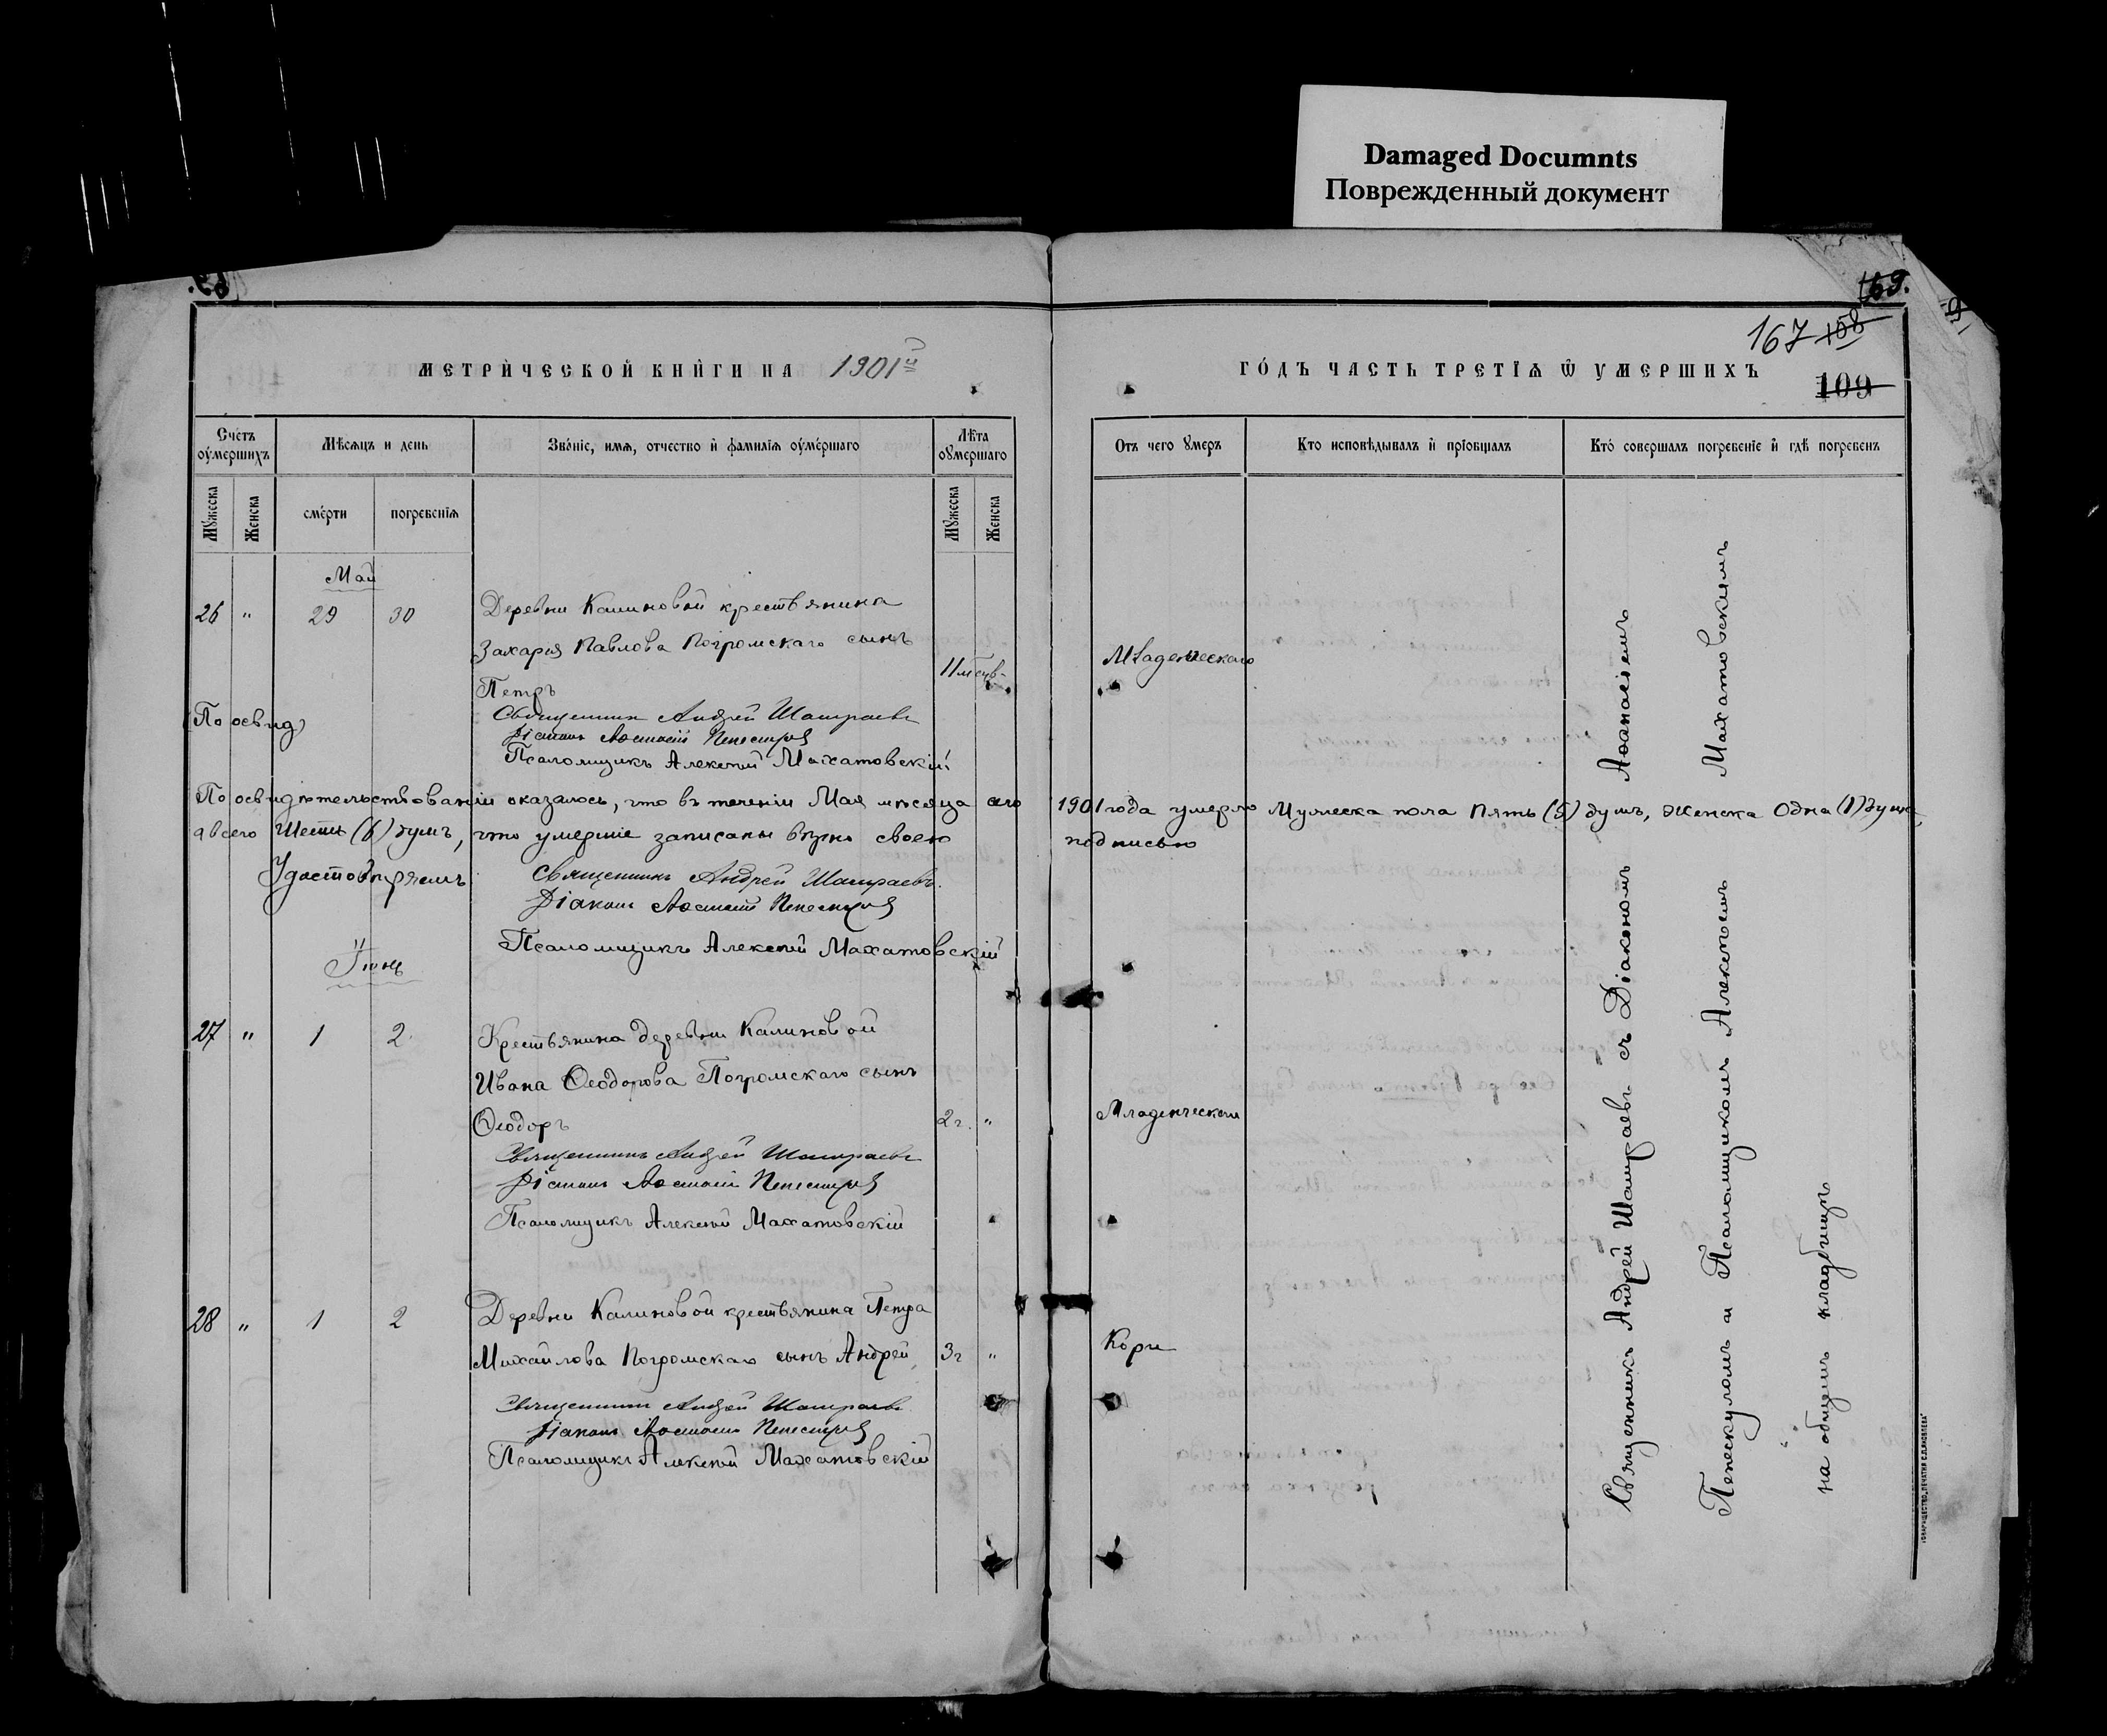 Damaged Documnts
Поврежденный документ
169.
167 108
109
МЕТРИЧЕСКОЙ КНИГИ НА 1901й
ГОДЪ ЧАСТЬ ТРЕТІѦ Ѿ УМЕРШИХЪ
Счетъ оумершихъ
Мѣсѧцъ и день
Званіе, имѧ, отчество и фамиліѧ оумершаго
Лѣта оумершаго
Отъ чего умеръ
Кто исповѣдывалъ и пріобщалъ
Кто совершалъ погребеніе и гдѣ погребенъ
Мужеска
Женска
смерти
погребеніѧ
Мужеска
Женска
Май
26 " 29 30 Деревни Калиновой крестьянина
Захарія Павлова Погромскаго сынъ
Петръ 11 мѣсяв. Младенческаго
Священникъ Андрей Шамраевъ
Діаконъ
Псаломщикъ Алексѣй Махатовскій
По освид
По освидѣтельствованіи оказалось, что въ теченіи Мая мѣсяца сего 1901 года умерло Мужеска пола Пять (5) душъ, Женска Одна (1) душа,
а всего Шесть (6) душъ, что умершіе записаны вѣрно своею подписью
Удостовѣряемъ
Священникъ Андрей Шамраевъ.
Діаконъ
Псаломщикъ Алексѣй Махатовскій
Іюнь
27 " 1 2 Крестьянина деревни Калиновой
Ивана Ѳеодорова Погромскаго сынъ
Ѳеодоръ 2 г. " Младенческой
Священникъ Андрей Шамраевъ
Діаконъ
Псаломщикъ Алексѣй Махатовскій
28 " 1 2 Деревни Калиновой крестьянина Петра
Михайлова Погромскаго сынъ Андрей 3 г " Кори
Священникъ Андрей Шамраевъ
Діаконъ
Псаломщикъ Алексѣй Махатовскій
Священникъ Андрей Шамраевъ съ Діакономъ Аѳанасіемъ
Пенескуломъ и Псаломщикомъ Алексѣемъ Махатовскимъ
на общемъ кладбищѣ